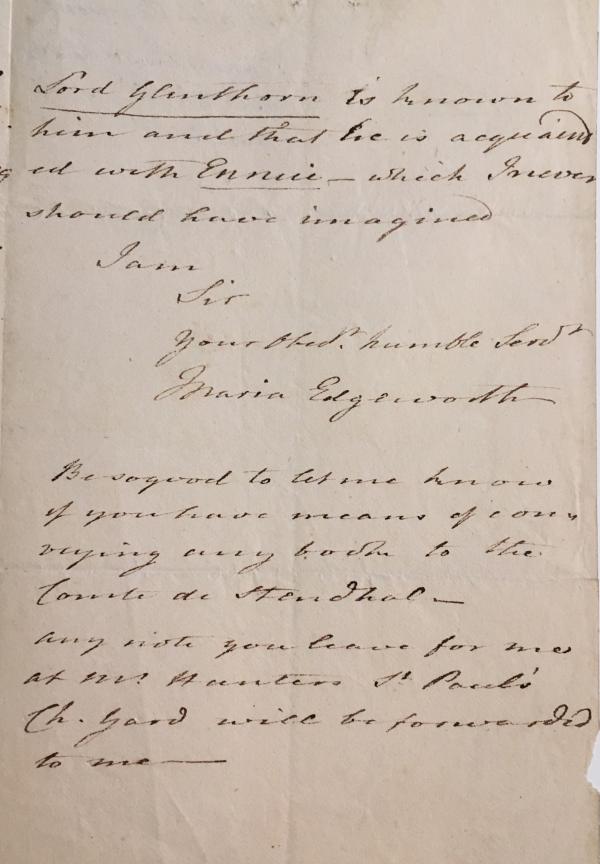 Lord Glenthorn is known to
him and that he is acquaint
ed with Ennui - which I never
should have imagined
I am
Sir
Your Obedt. humble Servt
Maria Edgeworth
Be so good to let me know
if you have means of con,,
veying any book to the
Comte de Stendhal -
any note you leave for me
at Mr. Hunters St. Paul's
Ch. Yard will be forwarded
to me -